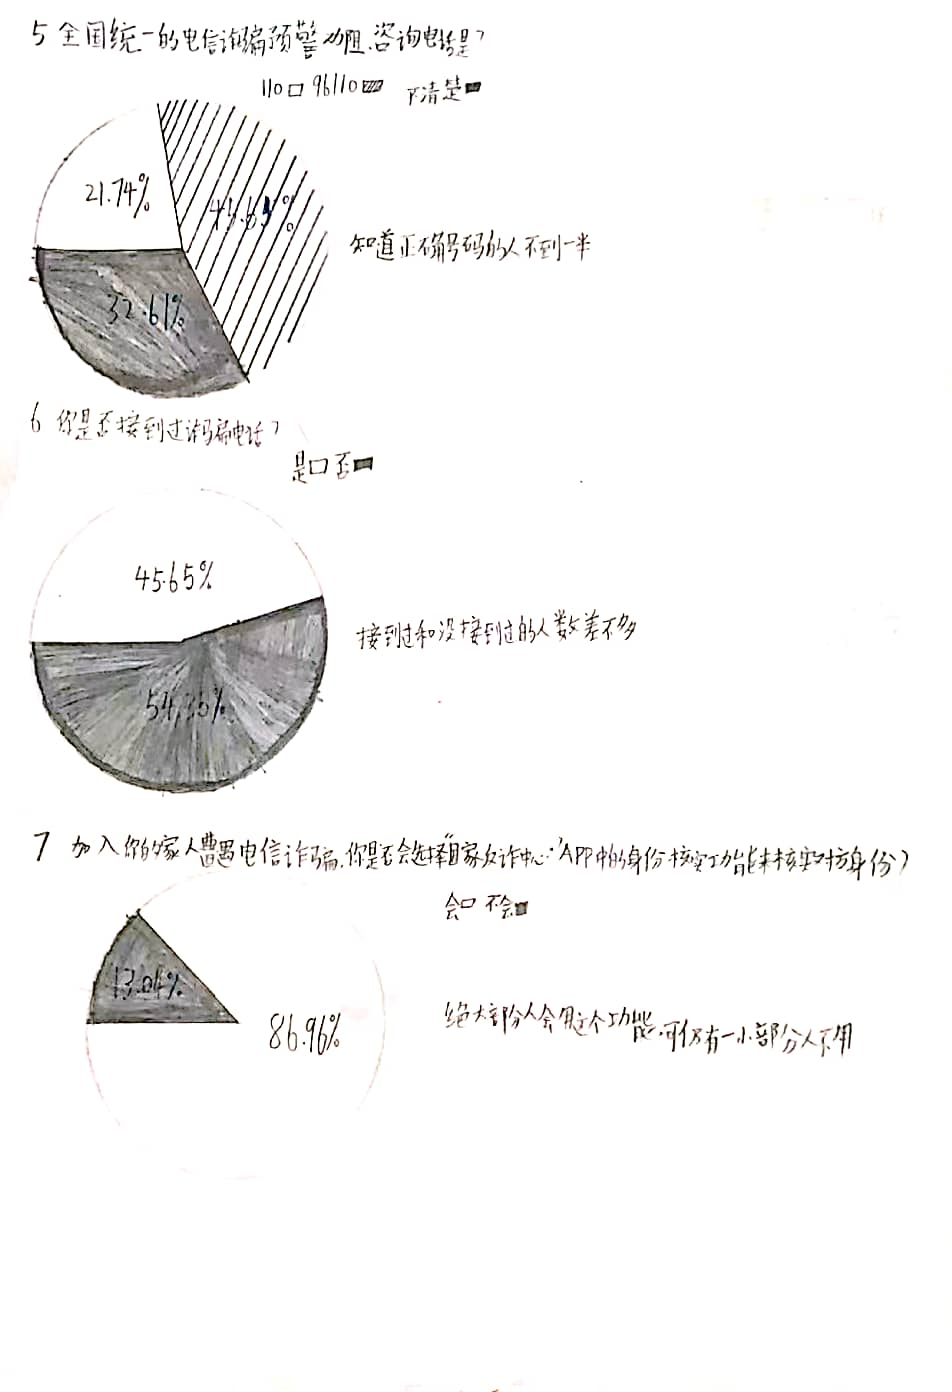 5 全国统一的电信诈骗预警劝阻、咨询电话是?
110 96110 不清楚
21.74%
45.65%
知道正确号码的人不到一半
32.61%
6 你是否接到过诈骗电话?
是 否
45.65%
接到过和没接到过的人数差不多
54.35%
7 加入你的家人遭遇电信诈骗,你是否会选择"国家反诈中心"APP中的身份核实功能来核实对方身份?
会 不会
13.04%
绝大部分人会用这个功能,可仍有一小部分人不用
86.96%